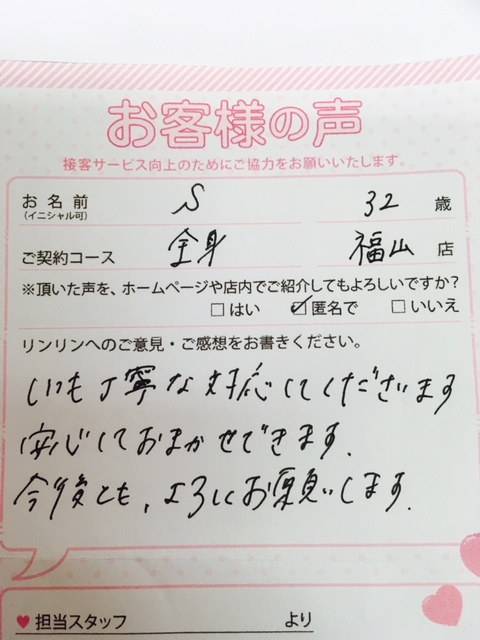 お客様の声
接客サービス向上のためにご協力をお願いいたします。
お名前 S 32 歳
(イニシャル可)
ご契約コース 全身 福山 店
※頂いた声を、ホームページや店内でご紹介してもよろしいですか?
□はい ☑匿名で □いいえ
リンリンへのご意見・ご感想をお書きください。
いつも丁寧な対応してくださいます
安心しておまかせできます.
今後とも、よろしくお願いします.
♥担当スタッフ より